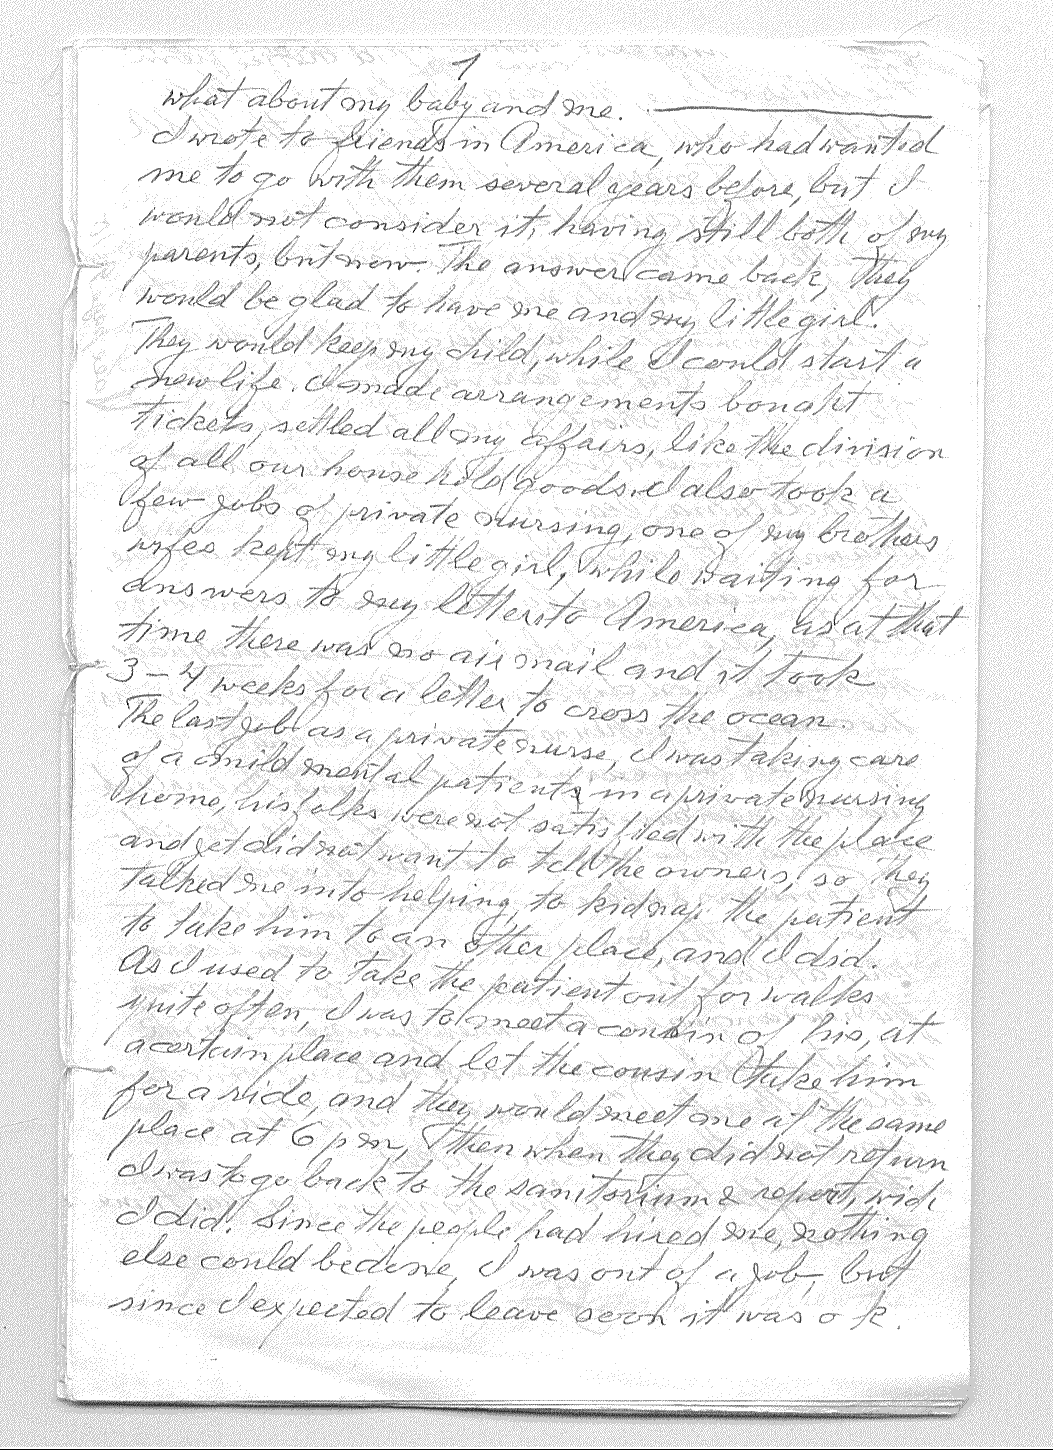 1
what about my baby and me.
I wrote to friends in America, who had wanted
me to go with them several years before, but I
would not consider it, having still both of my
parents, but now. The answer came back, they
would be glad to have me and my little girl.
They would keep my child, while I could start a
new life. I made arrangements bought
tickets, settled all my affairs, like the division
of all our house hold goods. I also took a
few jobs of private nursing, one of my brothers
wifes kept my little girl, while waiting for
answers to my letters to America, as at that
time there was no air mail and it took
3-4 weeks for a letter to cross the ocean.
The last job as a private nurse, I was taking care
of a mild mental patient, in a private nursing
home, his folks were not satisfied with the place
and yet did not want to tell the owners, so they
talked me into helping, to kidnap the patient
to take him to an other place, and I did.
As I used to take the patient out for walks
quite often, I was to meet a cousin of his, at
a certain place and let the cousin take him
for a ride, and they would meet me at the same
place at 6 pm, then when they did not return
I was to go back to the sanitorium & report, wich
I did. Since the people had hired me, nothing
else could be done, I was out of a job, but
since I expected to leave soon it was o k.